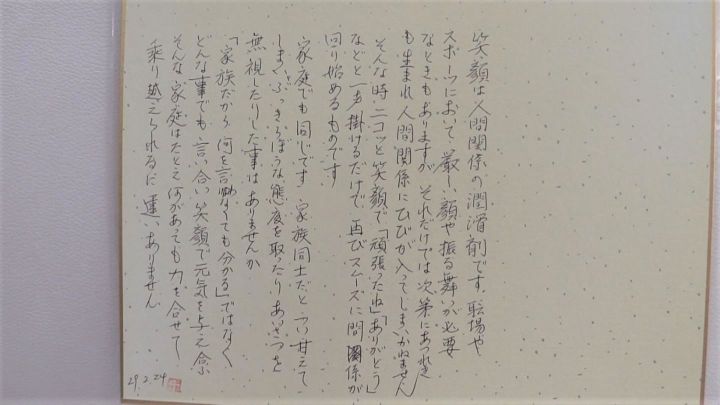 笑顔は人間関係の潤滑剤です 職場や
スポーツにおいて 厳しい顔や振る舞いが必要
なときもありますが それだけでは次第にあつれき
も生まれ 人間関係にひびが入ってしまいかねません
そんな時 ニコッと笑顔で「頑張ったね」「ありがとう」
などと一声掛けるだけで 再びスムーズに関係が
回り始めるものです
家庭でも同じです 家族同士だと つい甘えて
しまい ぶっきらぼうな態度を取ったり あいさつを
無視したりした事はありませんか
「家族だから 何を言わなくても分かる」ではなく
どんな事でも言い合い 笑顔で元気を与え合う
そんな家庭はたとえ何があっても 力を合せて
乗り越えられるに違いありません
29.2.24